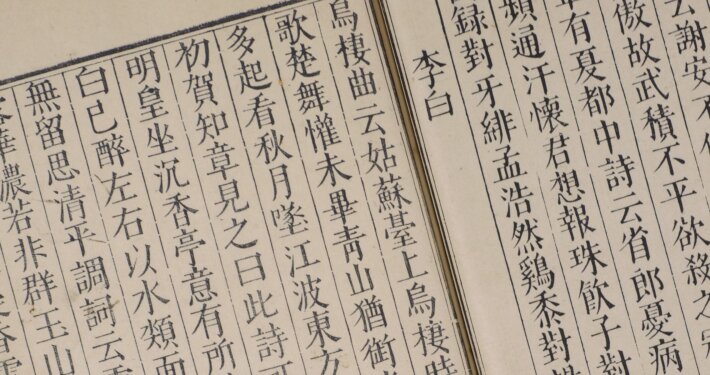 云謝安不
傲故武積不平欲殺之
有憂都中詩云省郎憂病
頻通汗懷君想報珠飲子對
錄對牙緋孟浩然鷄黍對
李白
烏棲曲云姑蘇臺上烏棲時
歌楚舞懽未畢青山猶銜
多起看秋月墜江波東方
初賀知章見之曰此詩可
明皇坐沉香亭意有所
白已醉左右以水類面
無留思清平調詞云
華濃若非群玉山